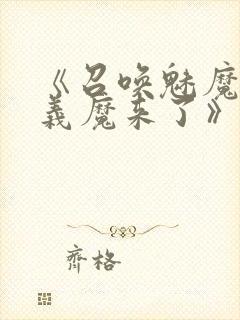 《召唤魅魔
义魔来了》
齐格